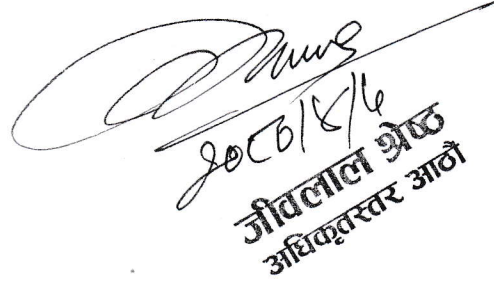 २०८०/४/६
जीवलाल श्रेष्ठ
अधिकृतस्तर आठौं